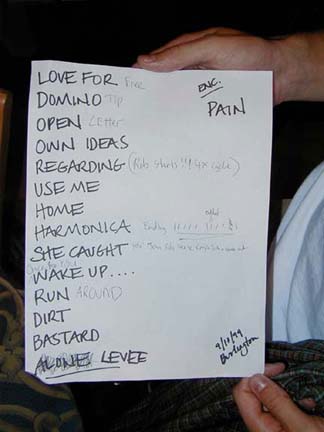 LOVE FOR Free
ENC.
DOMINO Tip
PAIN
OPEN Letter
OWN IDEAS
REGARDING (Rob starts !! 4x cycle)
USE ME
HOME
HARMONICA Ending
SHE CAUGHT
WAKE UP.....
RUN AROUND
DIRT
BASTARD
ALONE LEVEE
9/10/99
Burlington